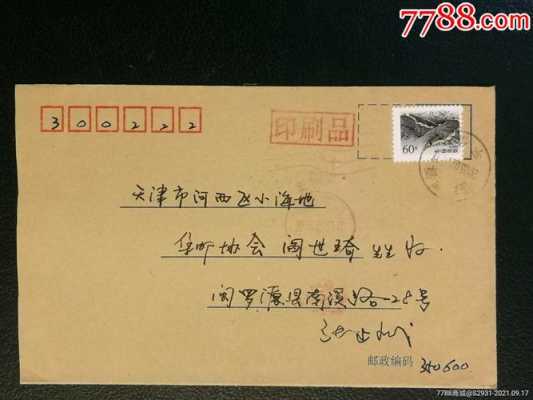 7788.com
300222
印刷品
60分
天津市河西区小海地
华邮协会 阎世琦 先生 收
闽罗源县南溪路28号
邮政编码 350600
7788商城@S2931-2021.09.17